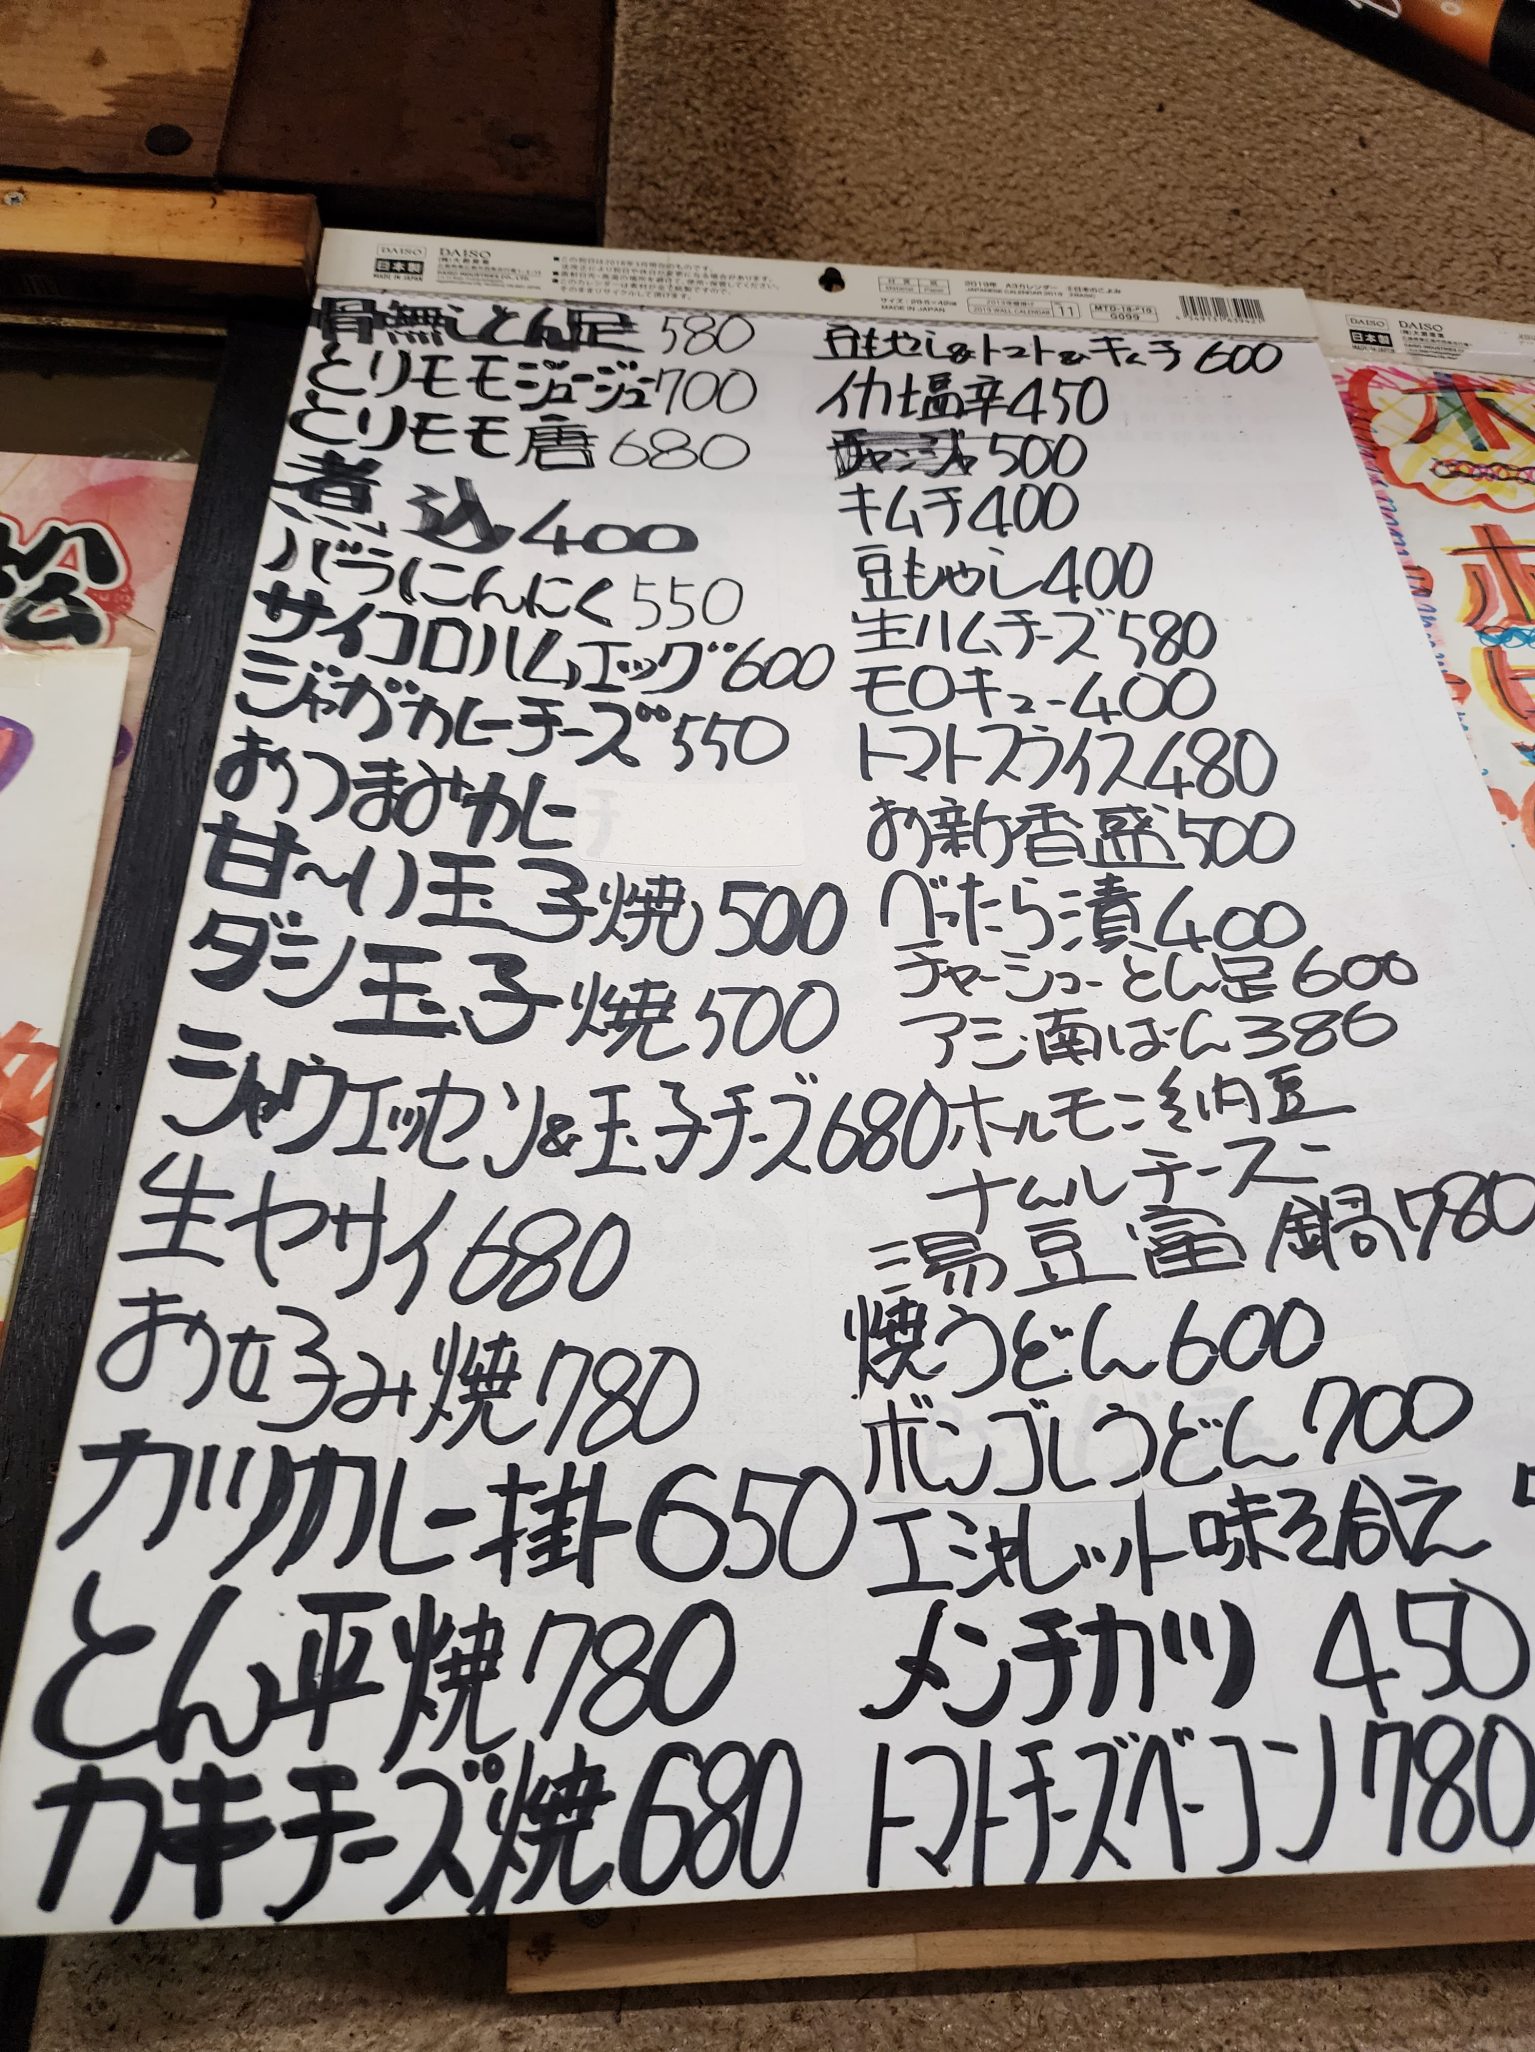 DAISO
DAISO
日本製
MADE IN JAPAN
2019年 A3カレンダー
MADE IN JAPAN
2019 WALL CALENDAR
11
G099
骨無しとん足 580
とりモモジュージュー700
とりモモ唐 680
煮込400
バラにんにく550
サイコロハムエッグ600
ジャガカレーチーズ550
おつまみカレー
甘〜い玉子焼500
ダシ玉子焼500
シャウエッセン&玉子チーズ680
生ヤサイ680
お好み焼780
カツカレー掛650
とん平焼780
カキチーズ焼680
豆もやし&トマト&キムチ600
イカ塩辛450
チャンジャ500
キムチ400
豆もやし400
生ハムチーズ580
モロキュー400
トマトスライス480
お新香盛500
べったら漬400
チャーシューとん足600
アジ南ばん380
ホルモン納豆
ナムルテースー
湯豆富鍋780
焼うどん600
ボンゴレうどん700
エシャレット味そ合え
メンチカツ 450
トマトチーズベーコン780
DAISO
DAISO
日本製